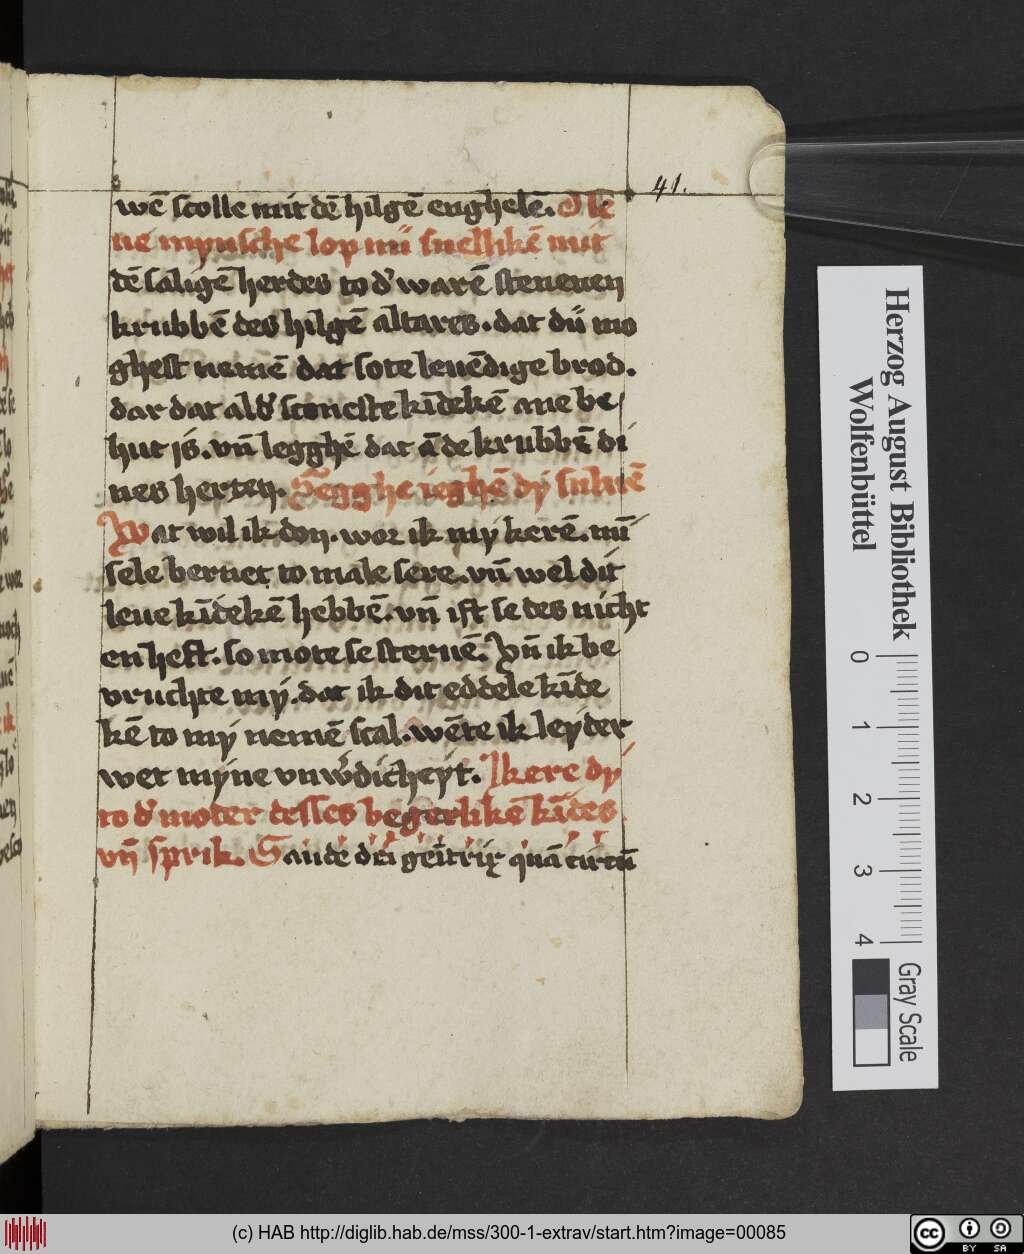 41.
wē scolle mit dē hilgē enghelē. O kē
ne mynsche lop nu snellikē mit
dē saligē herdes to d' warē stenenen
krubbē des hilgē altares. dat du mo
ghest nemē dat sote leuēdige brod.
dar dat ald' sconeste kīdekē ane be
hut is. vn̄ legghē dat ā de krubbē di
nes herten. Segghe ieghē dy suluē
Wat wil ik don. wor ik my kerē. mī
sele bernet to male sere. vn̄ wel dit
leue kīdekē hebbē. vn̄ ist se des nicht
en heft. so mote se steruē. Vn̄ ik be
vruchte my. dat ik dit eddele kīde
kē to my nemē scal. wēte ik leyder
wet myne vnw'dicheyt. Kere dy
to d' moter desses begerlikē kīdes
vn̄ sprik. Gaude dei genitrix quā circū
Herzog August Bibliothek
Wolfenbüttel
0 1 2 3 4
Gray Scale
(c) HAB http://diglib.hab.de/mss/300-1-extrav/start.htm?image=00085
cc BY SA